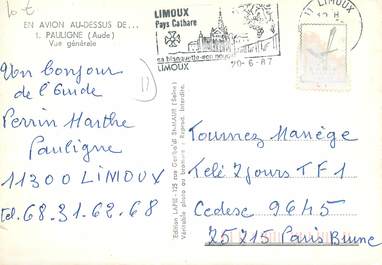 10 €
EN AVION AU-DESSUS DE...
1. PAULIGNE (Aude)
Vue générale
LIMOUX
Pays Cathare
sa blanquette-son
LIMOUX
20-6-87
11 LIMOUX
Un bonjour
de l'Aude
Perrin Marthe
Pauligne
11300 LIMOUX
tel. 68.31.62.68
Edition LAPIE - 125 rue Garibaldi St-MAUR (Seine)
Véritable photo au bromure - Reprod. interdite.
Tournez Manège
Télé 7 jours TF1
Cedesc 9645
75215 Paris Brune